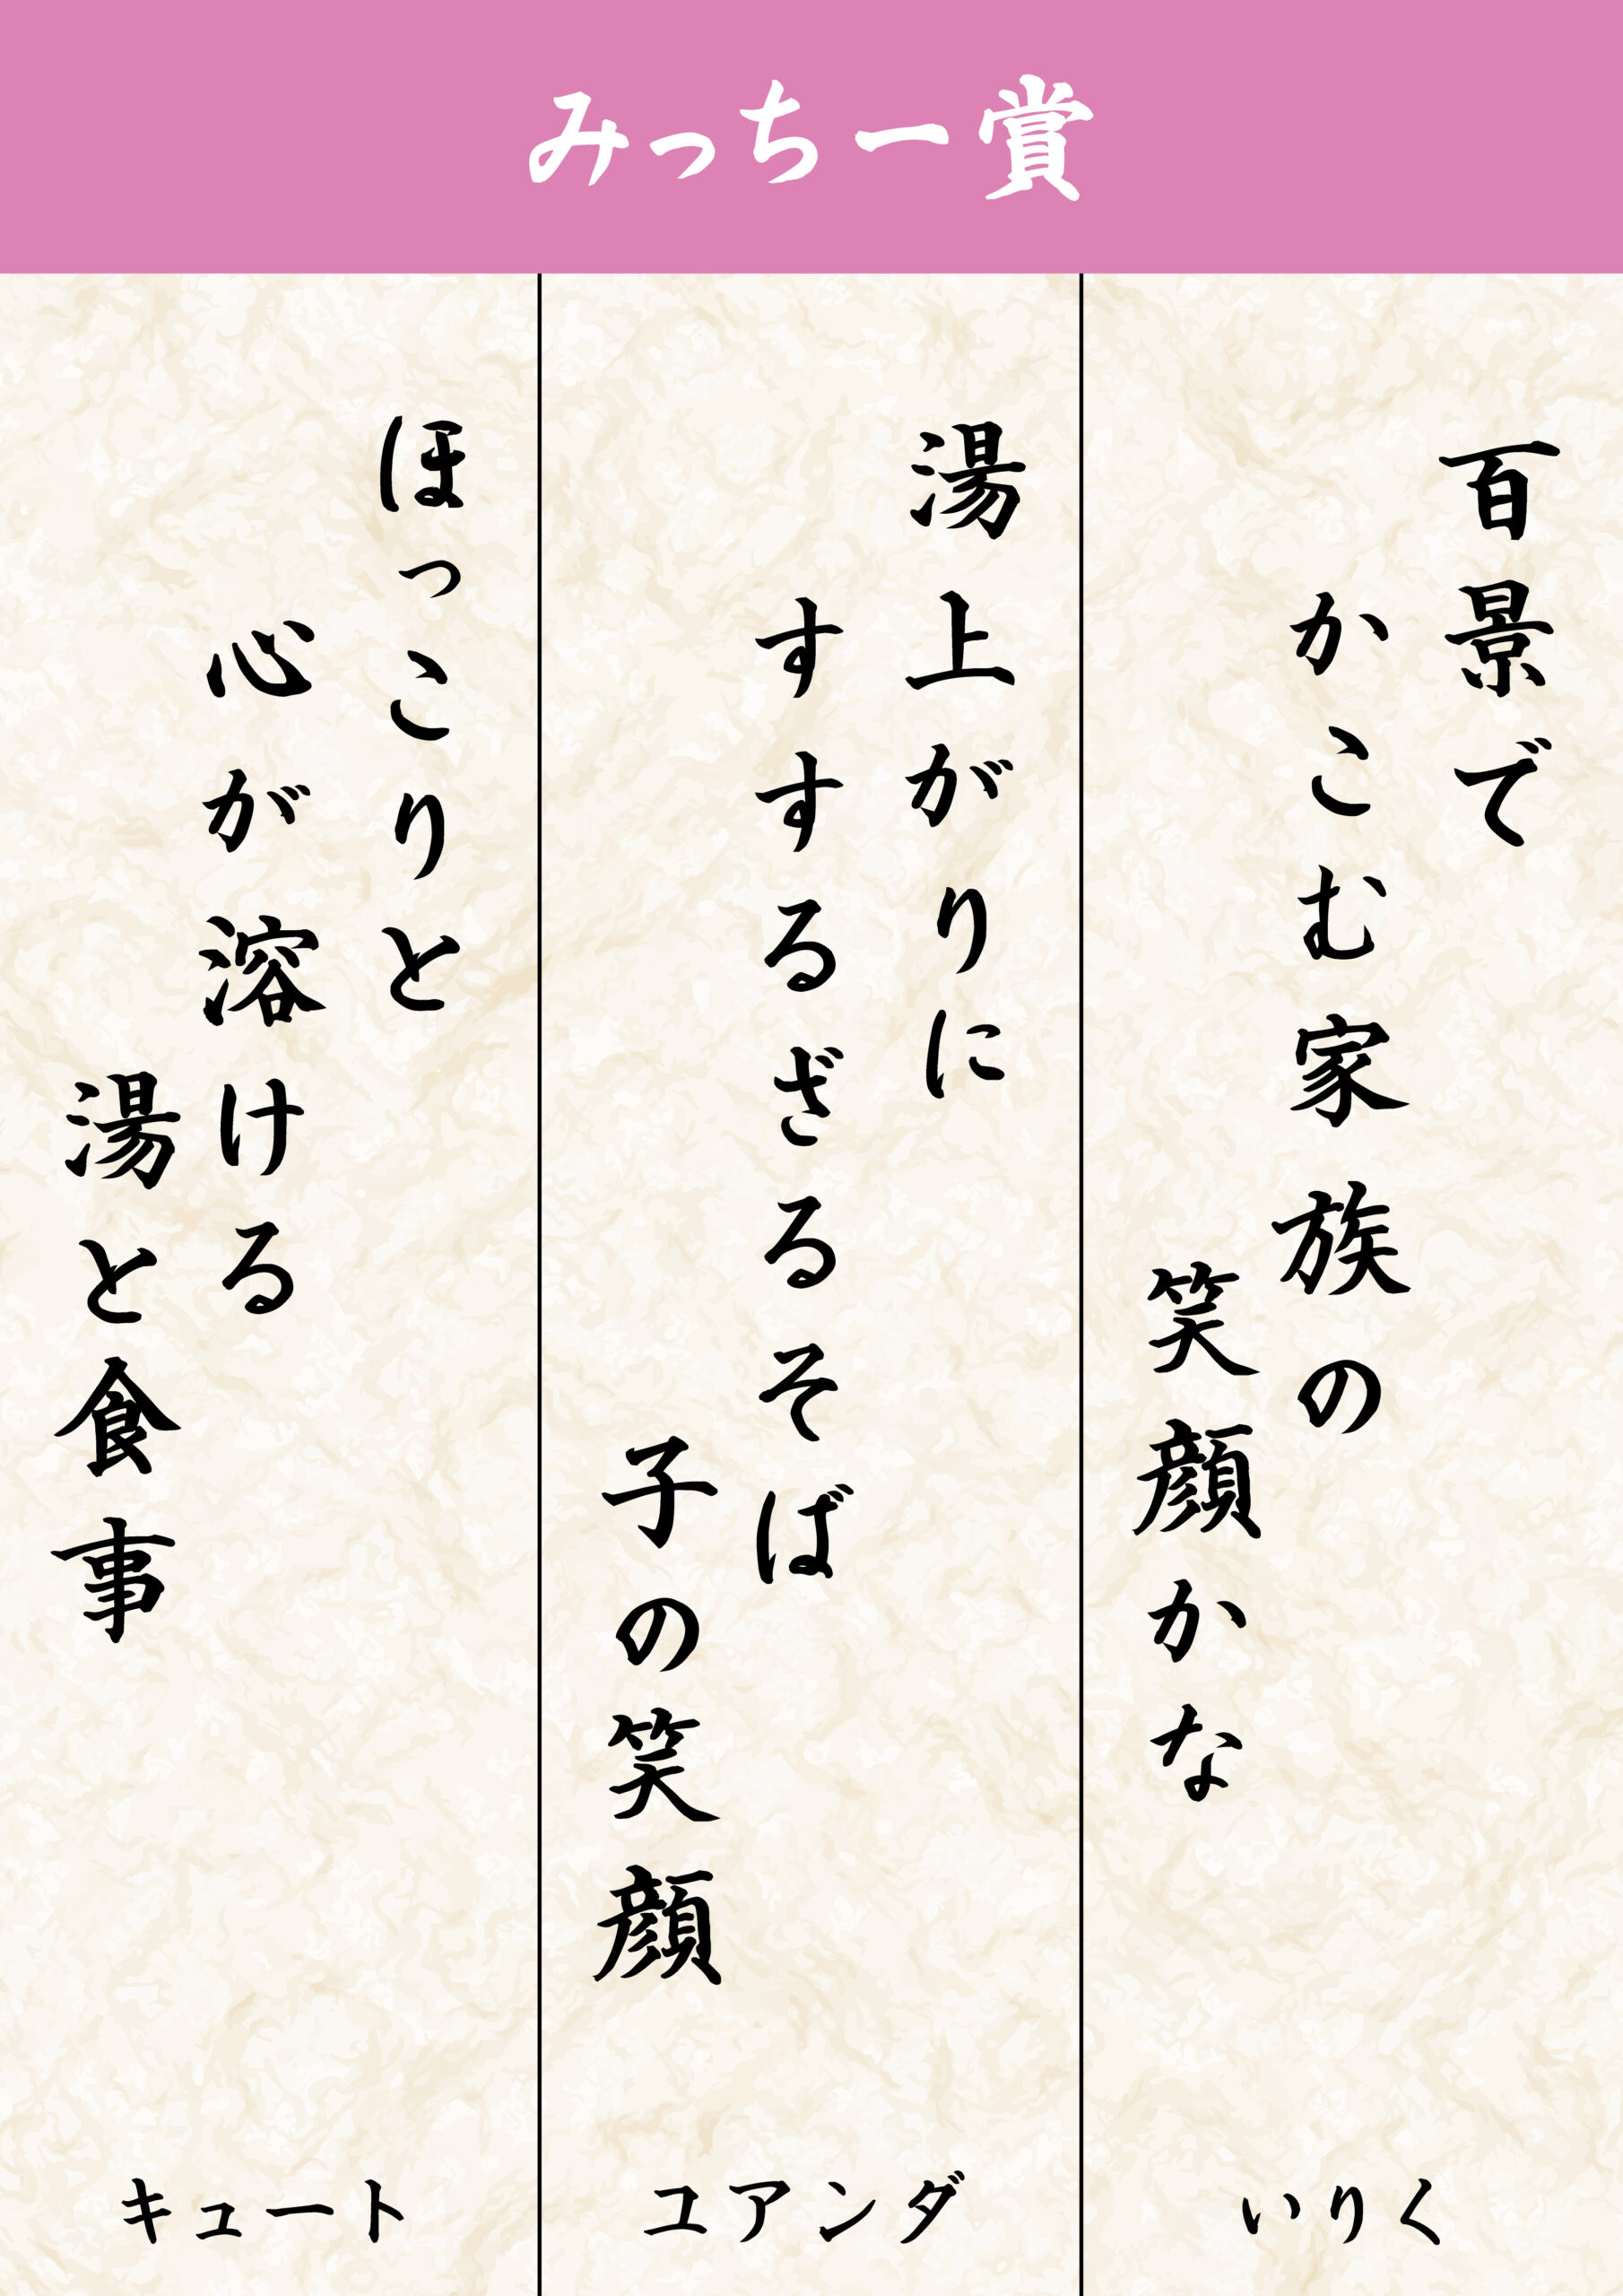 みっちー賞
百景で
かこむ家族の
笑顔かな
いりく
湯上がりに
すするざるそば
子の笑顔
ユアンダ
ほっこりと
心が溶ける
湯と食事
キュート